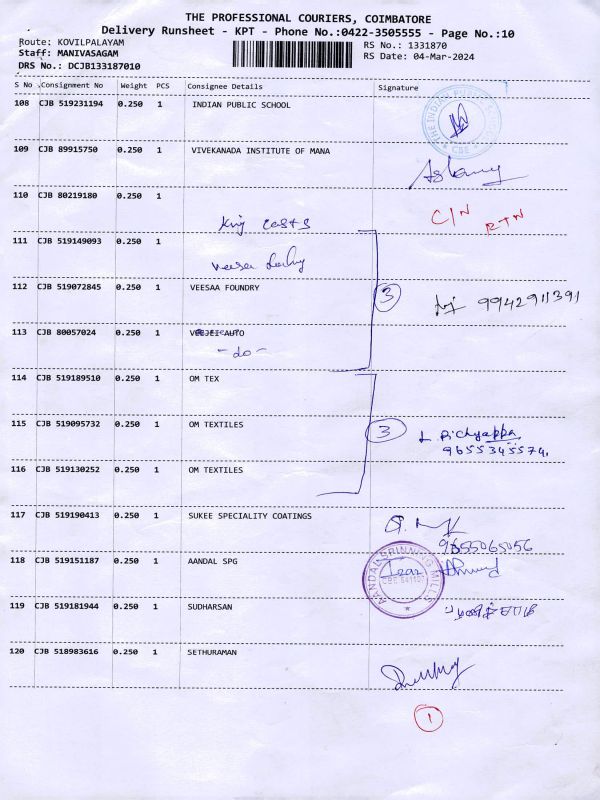 THE PROFESSIONAL COURIERS, COIMBATORE
Delivery Runsheet - KPT - Phone No.:0422-3505555 - Page No.:10
Route: KOVILPALAYAM
Staff: MANIVASAGAM
DRS No.: DCJB133187010
RS No.: 1331870
RS Date: 04-Mar-2024
S No Consignment No Weight PCS Consignee Details Signature
108 CJB 519231194 0.250 1 INDIAN PUBLIC SCHOOL
THE INDIAN PUBLIC CBE
109 CJB 89915750 0.250 1 VIVEKANADA INSTITUTE OF MANA
110 CJB 80219180 0.250 1
King casts
C/N RTN
111 CJB 519149093 0.250 1
Veesa
112 CJB 519072845 0.250 1 VEESAA FOUNDRY
3
9942911391
113 CJB 80057024 0.250 1 AUTO
- do -
114 CJB 519189510 0.250 1 OM TEX
115 CJB 519095732 0.250 1 OM TEXTILES
3
L. Pichyappa
9655345574.
116 CJB 519130252 0.250 1 OM TEXTILES
117 CJB 519190413 0.250 1 SUKEE SPECIALITY COATINGS
9655065056
118 CJB 519151187 0.250 1 AANDAL SPG
AANDAL SPINNING MILLS
119 CJB 519181944 0.250 1 SUDHARSAN
120 CJB 518983616 0.250 1 SETHURAMAN
1